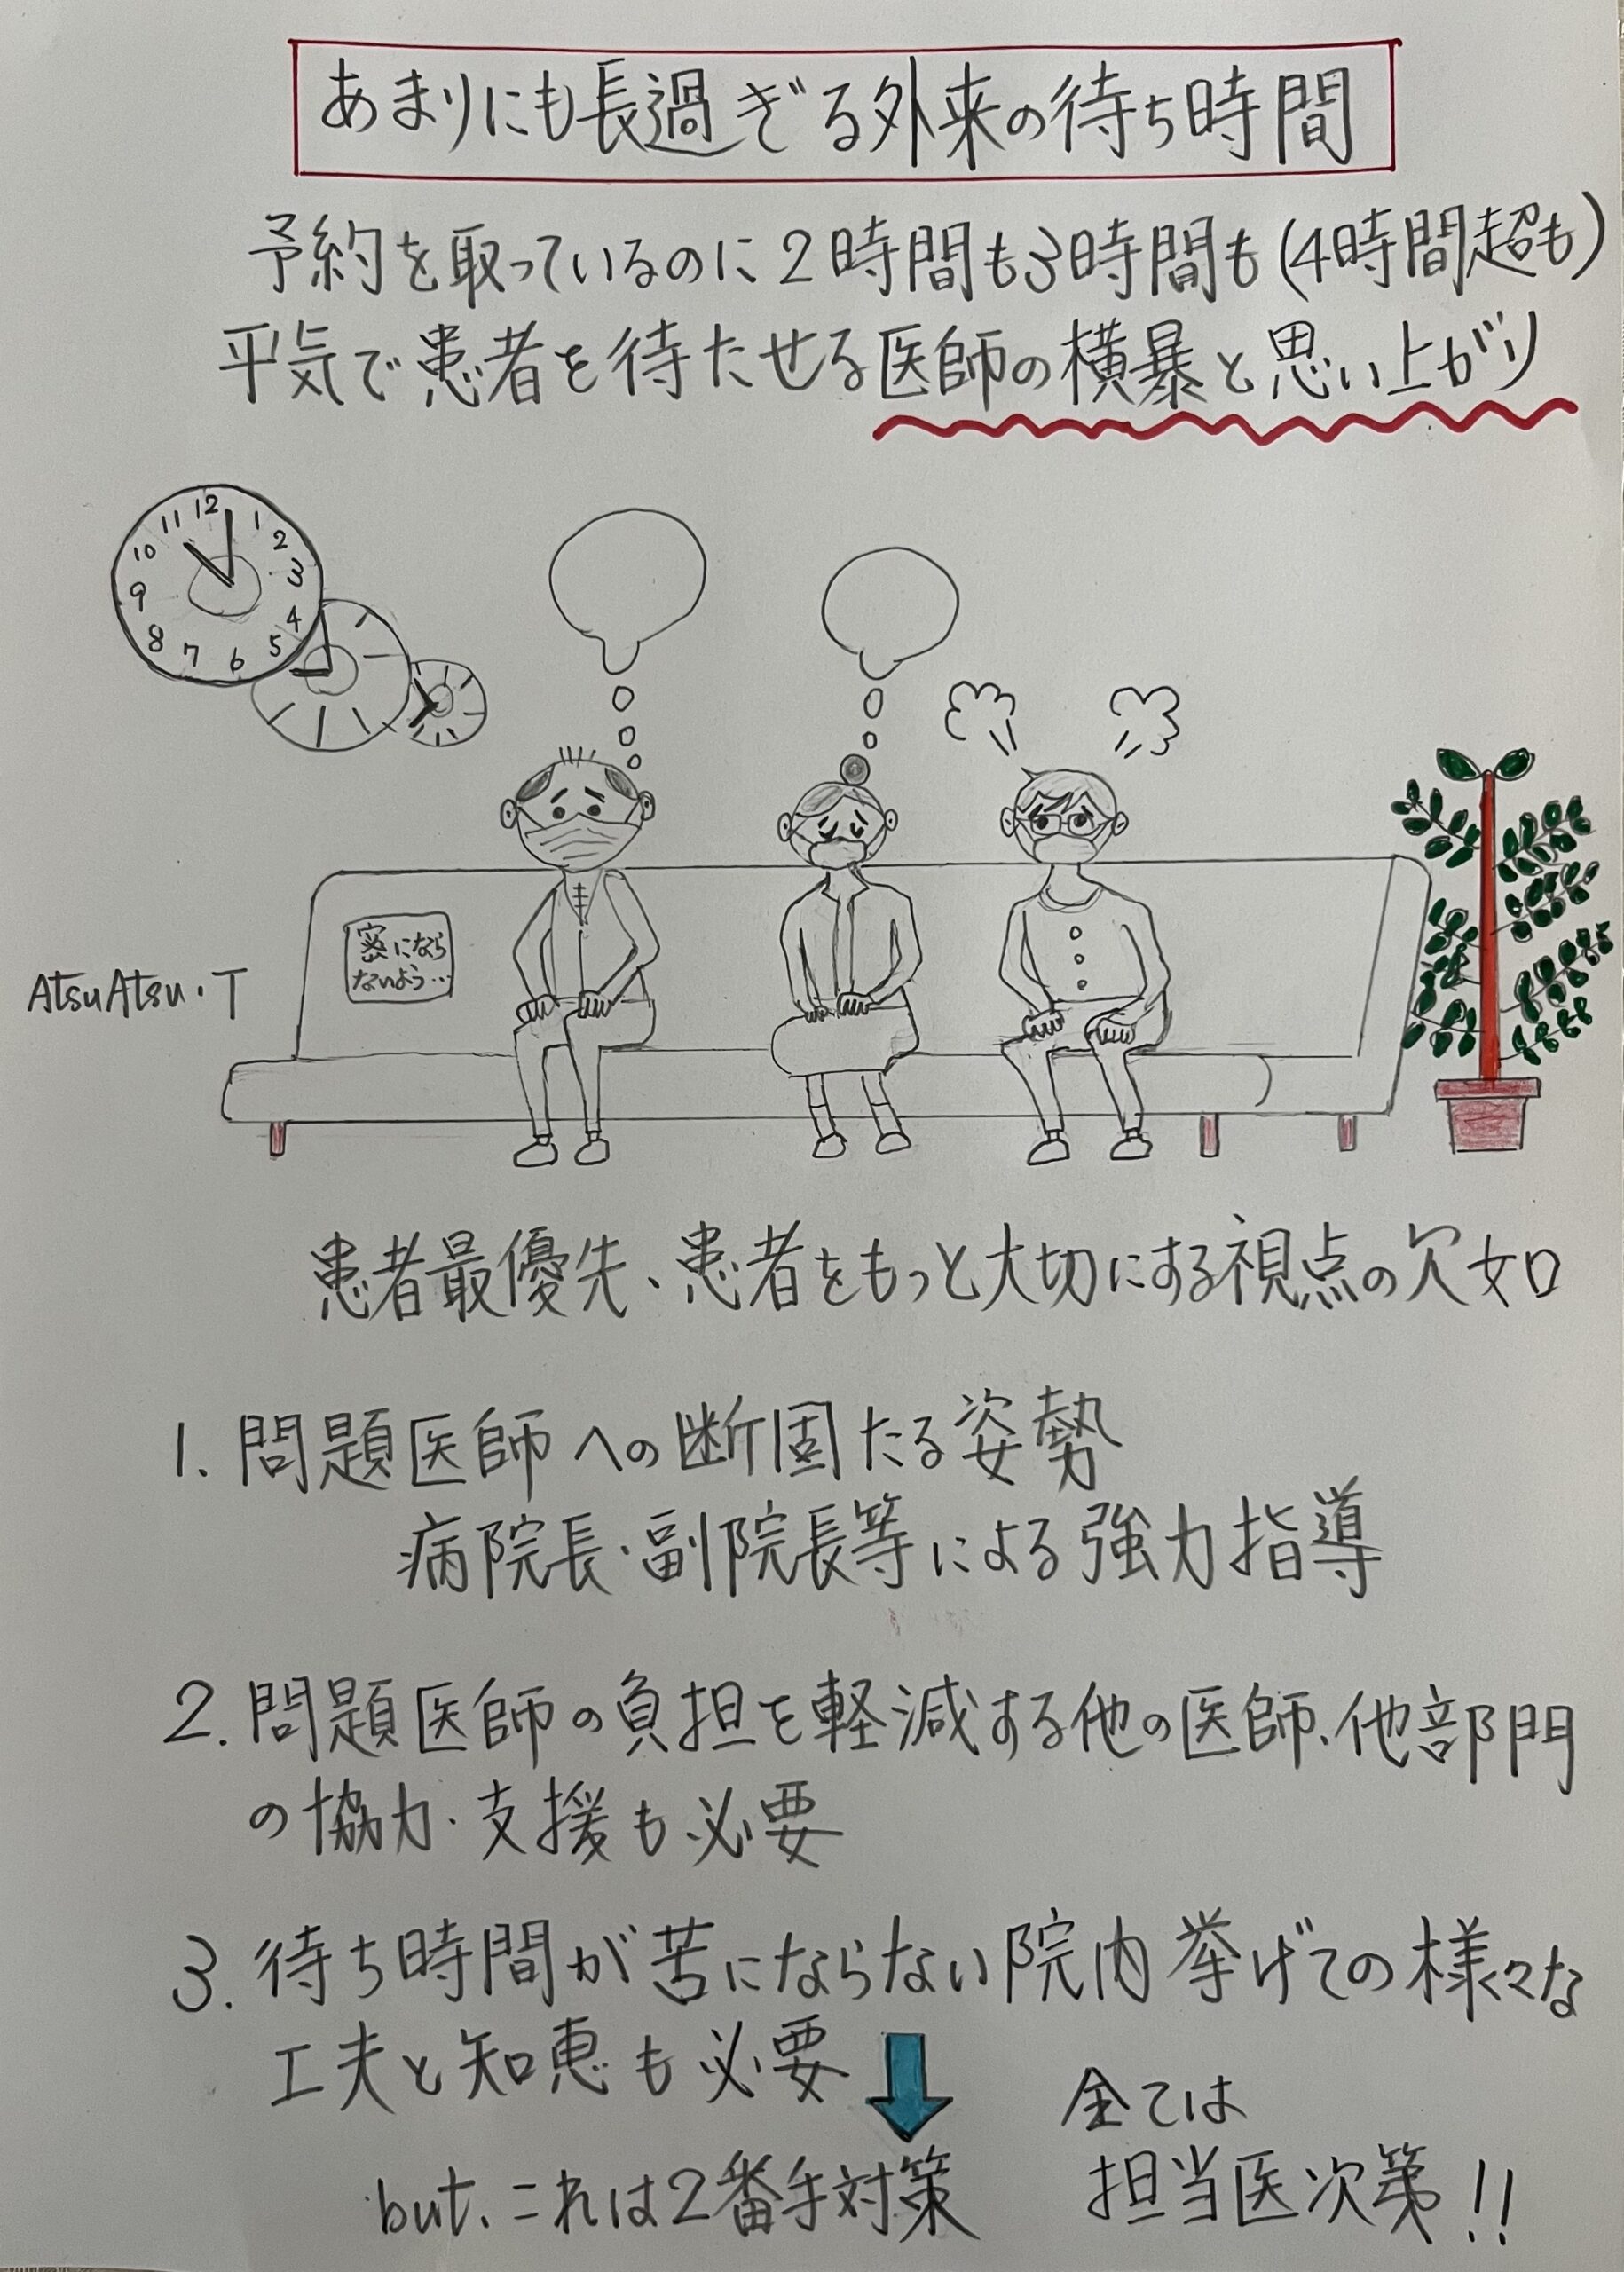 あまりにも長過ぎる外来の待ち時間
予約を取っているのに2時間も3時間も(4時間超も)
平気で患者を待たせる医師の横暴と思い上がり
12
1
2
3
4
5
6
7
8
9
10
11
密になら
ないよう…
AtsuAtsu・T
患者最優先、患者をもっと大切にする視点の欠如
1. 問題医師への断固たる姿勢
病院長・副院長等による強力指導
2. 問題医師の負担を軽減する他の医師、他部門
の協力・支援も必要
3. 待ち時間が苦にならない院内挙げての様々な
工夫と知恵も必要
but、これは2番手対策
全ては
担当医次第!!